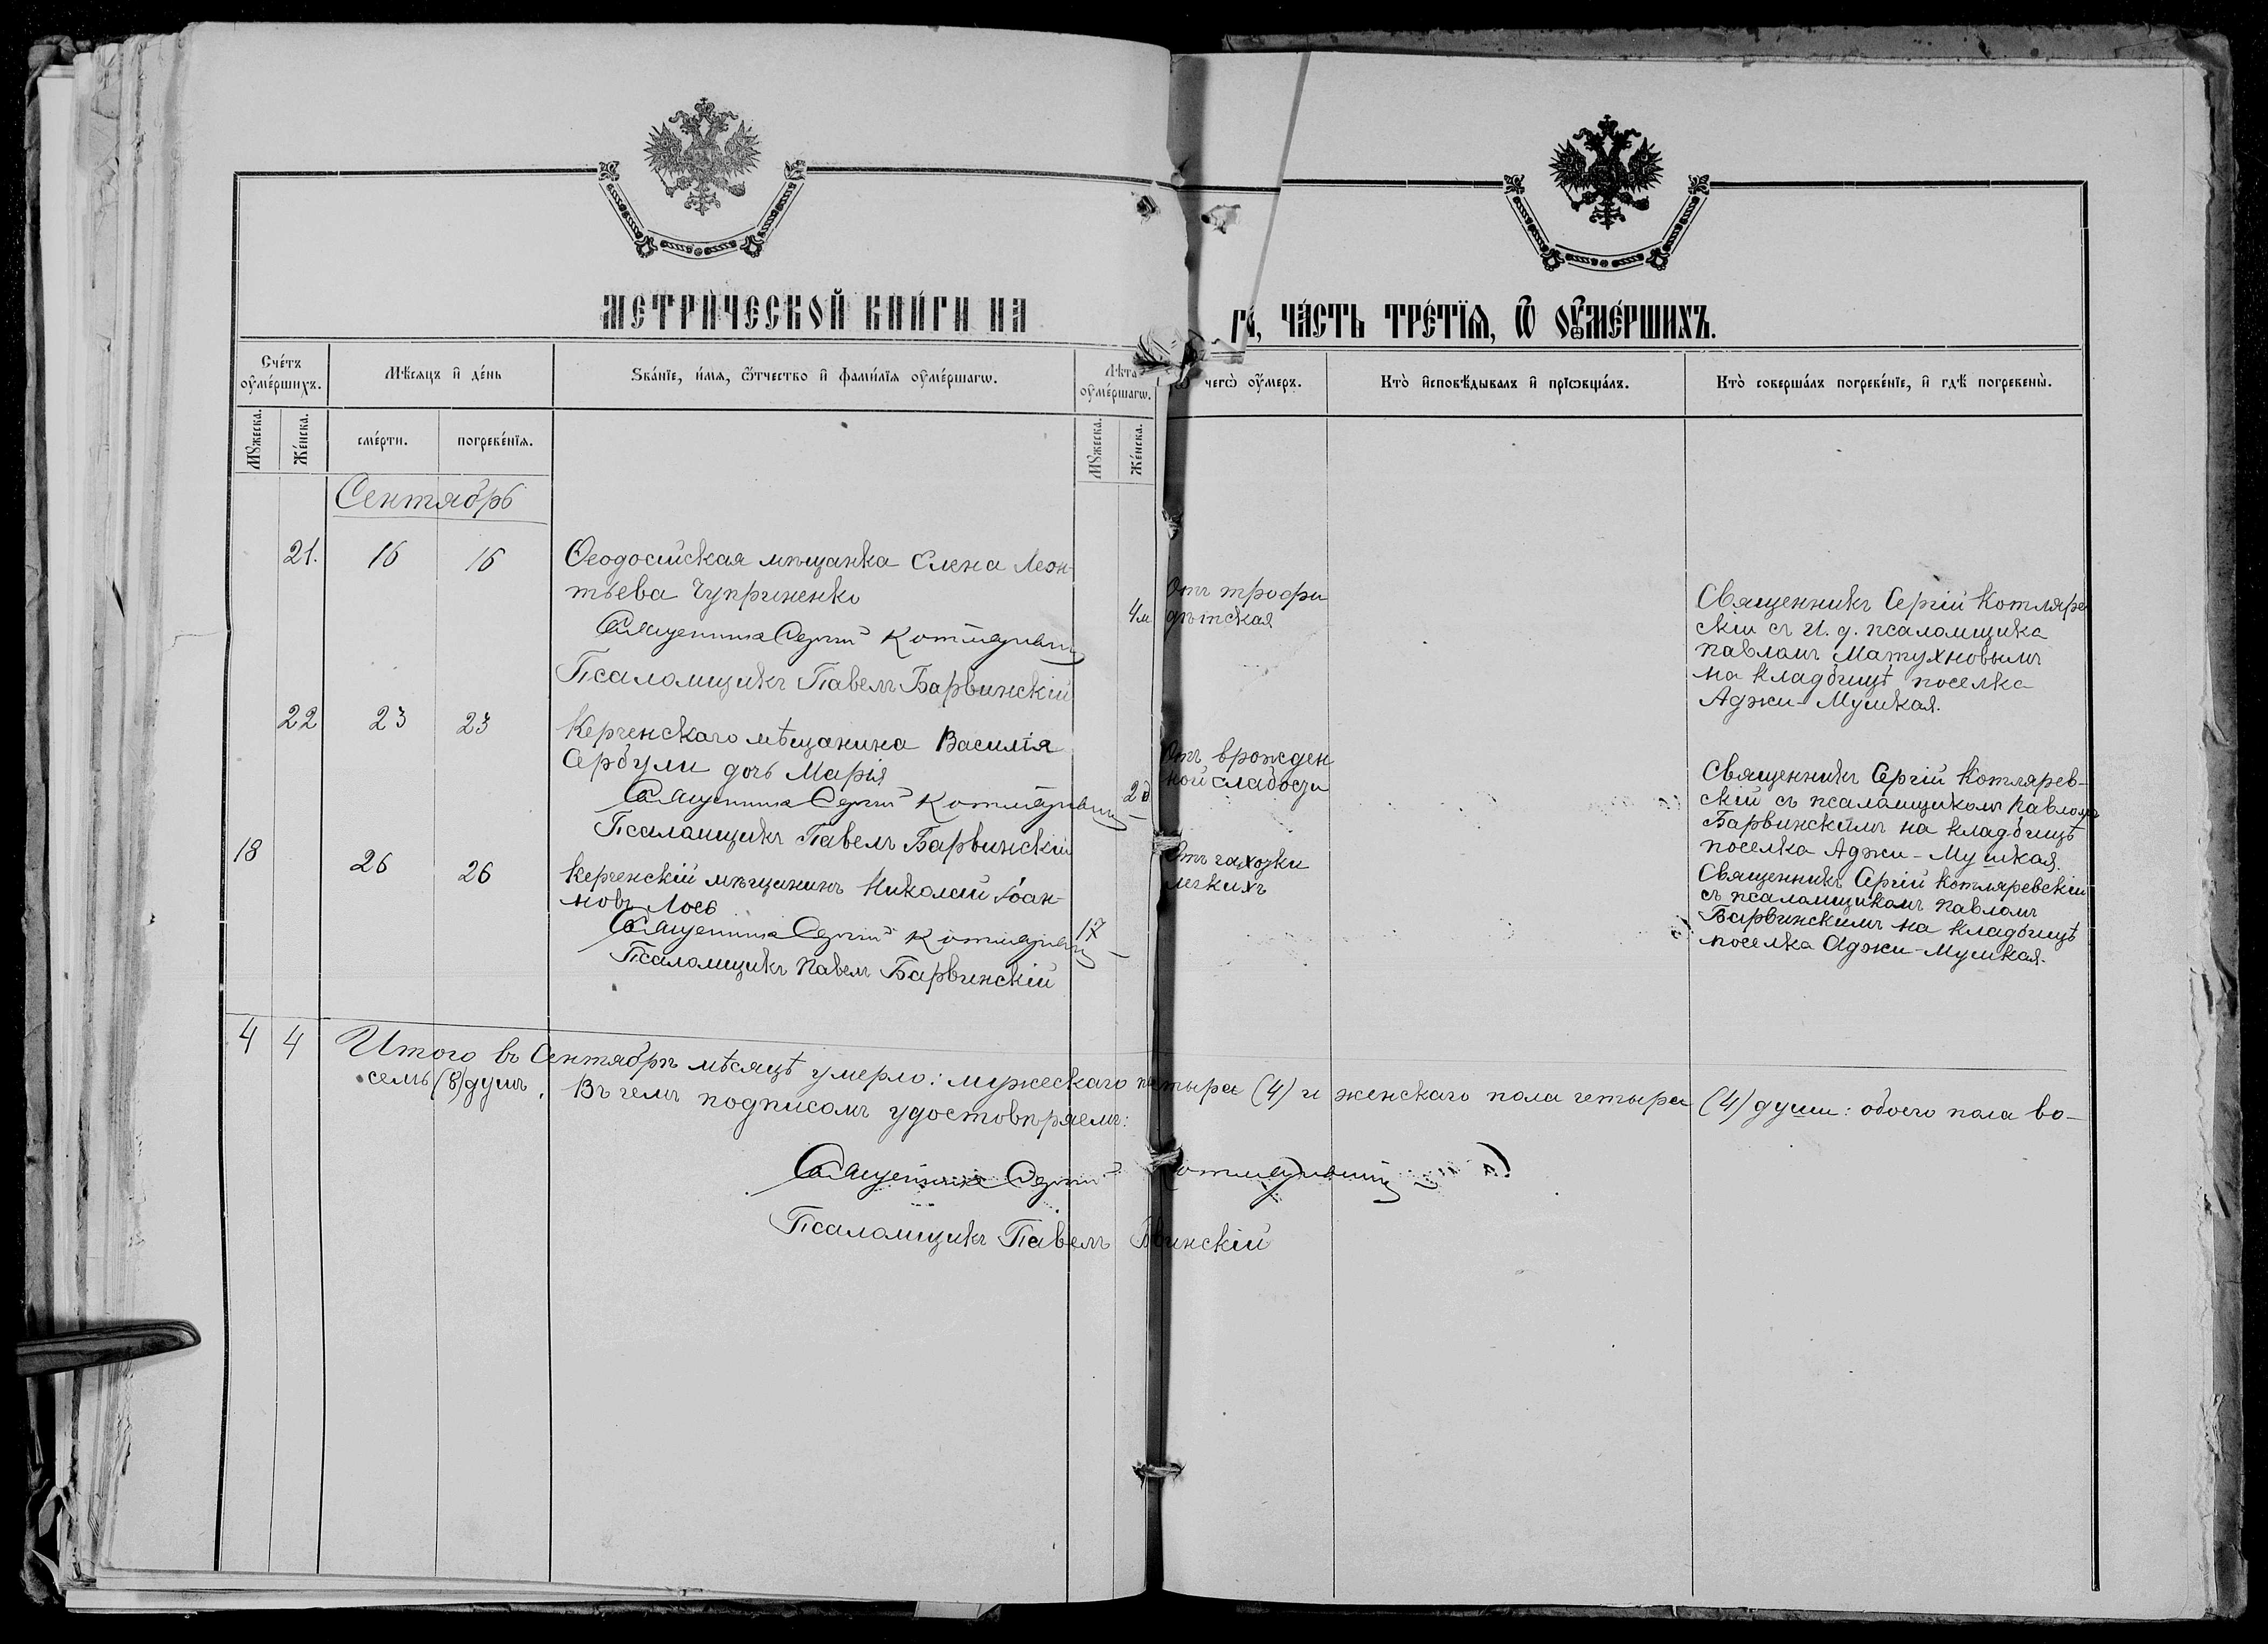 МЕТРИ́ЧЕСКОЙ КНИ́ГИ НА
ГѠ́, ЧА́СТЬ ТРЕ́ТЇѦ, Ѿ ОУ҆МЕ́РШИХЪ.
Сче́тъ оу҆ме́ршихъ.
Мѣ́сѧцъ и҆ де́нь
Ѕва́нїе, и҆́мѧ, ѻ҆́тчество и҆ фами́лїѧ оу҆ме́ршагѡ.
Лѣ́та оу҆ме́ршагѡ.
Ѿ чегѡ̀ оу҆́меръ.
Кто̀ и҆сповѣ́дывалъ и҆ прїѡбща́лъ.
Кто̀ соверша́лъ погребе́нїе, и҆ гдѣ̀ погребены̀.
Мꙋ́жеска.
Же́нска.
сме́рти.
погребе́нїѧ.
Мꙋ́жеска.
Же́нска.
Сентябрь
21.
16
16
Ѳеодосійская мѣщанка Елена Леон-
тьева Чуприненко
Священникъ Сергій Котляревскій
Псаломщикъ Павелъ Барвинскій
4м
Отъ трофи
дѣтская
Священникъ Сергій Котляре
скій съ И. д. псаломщика
Павломъ Матухновымъ
на кладбищѣ поселка
Аджи-Мушкая.
22
23
23
Керченскаго мѣщанина Василія
Сербули дочь Марія
Священникъ Сергій Котляревскій
Псаломщикъ Павелъ Барвинскій
2д
Отъ врожден
ной слабости
Священникъ Сергій Котлярев-
скій съ псаломщикомъ Павломъ
Барвинскимъ на кладбищѣ
поселка Аджи-Мушкая.
18
26
26
Керченскій мѣщанинъ Николай Іоан-
новъ Лоев
Священникъ Сергій Котляревскій
Псаломщикъ Павелъ Барвинскій
17
Отъ чахотки
легкихъ
Священникъ Сергій Котляревскій
съ псаломщикомъ Павломъ
Барвинскимъ на кладбищѣ
поселка Аджи-Мушкая.
4
4
Итого въ Сентябрѣ мѣсяцѣ умерло: мужескаго четыре (4) и женскаго пола четыре (4) души: обоего пола во-
семь (8) душъ. Въ чемъ подписомъ удостовѣряемъ:
Священникъ Сергій Котляревскій
Псаломщикъ Павелъ Барвинскій